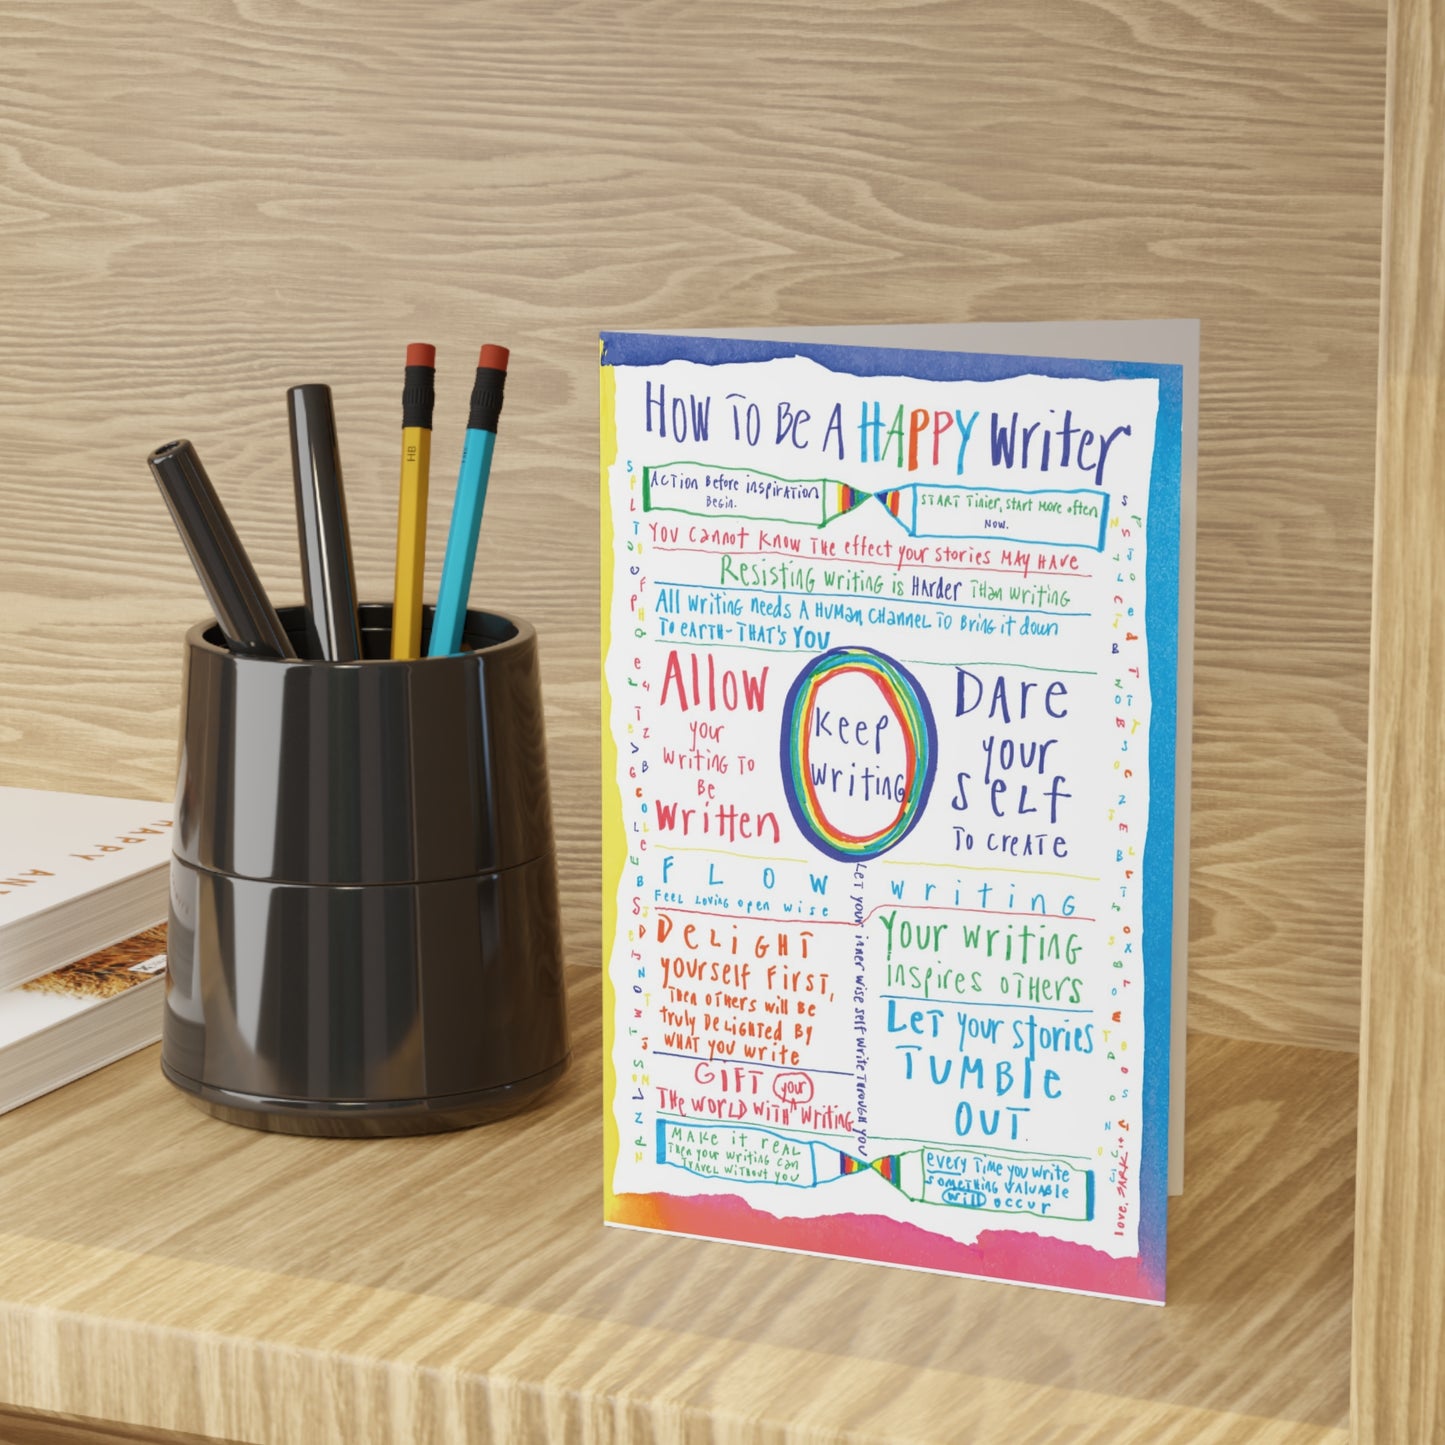 How To Be A HAPPY Writer
Action Before inspiration
Begin.
START Tinier, start more often
Now.
You cannot know the effect your stories may have
Resisting writing is Harder Than writing
All writing needs A Human Channel to Bring it down
To earth - That's You
Allow
your
writing to
Be
written
Keep
writing
Dare
your
self
To create
FLOW
Feel Loving open wise
writing
Let your inner wise self write through you
Delight
yourself first,
Then others will be
truly delighted by
what you write
Your writing
inspires others
Let your stories
Tumble
Out.
Gift your
The world with ^ writing
Make it real
Then your writing can
Travel without you
every time you write
something valuable
will occur
love, SARK
HB
HAPPY